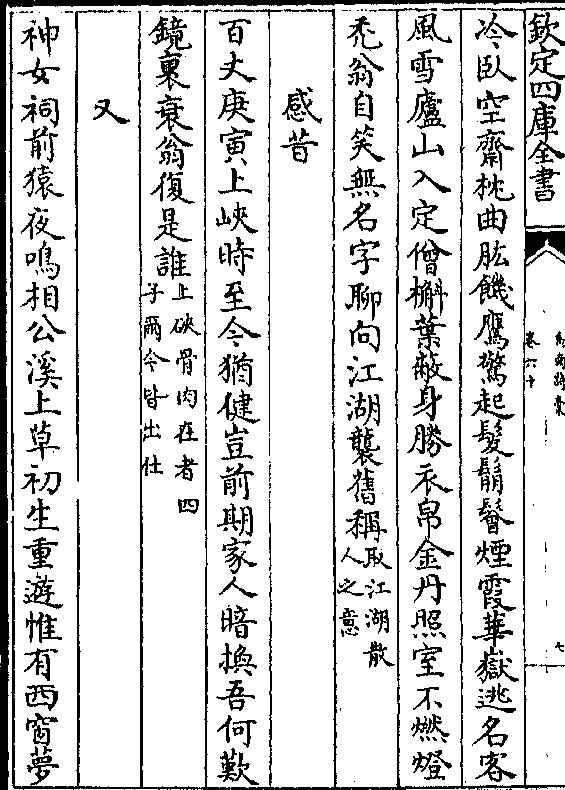 欽定四庫全書
劍南詩藁
卷六十
七
冷臥空齋枕曲肱饑鷹驚起髮鬅鬙煙霞華嶽逃名客
風雪廬山入定僧槲葉蔽身勝衣帛金丹照室不燃燈
禿翁自笑無名字聊向江湖襲舊稱取江湖散
人之意
感昔
百丈庚寅上峽時至今猶健豈前期家人暗換吾何歎
鏡裏衰翁復是誰上硤骨肉在者四
子爾今皆出仕
又
神女祠前猿夜鳴相公溪上草初生重遊惟有西窗夢